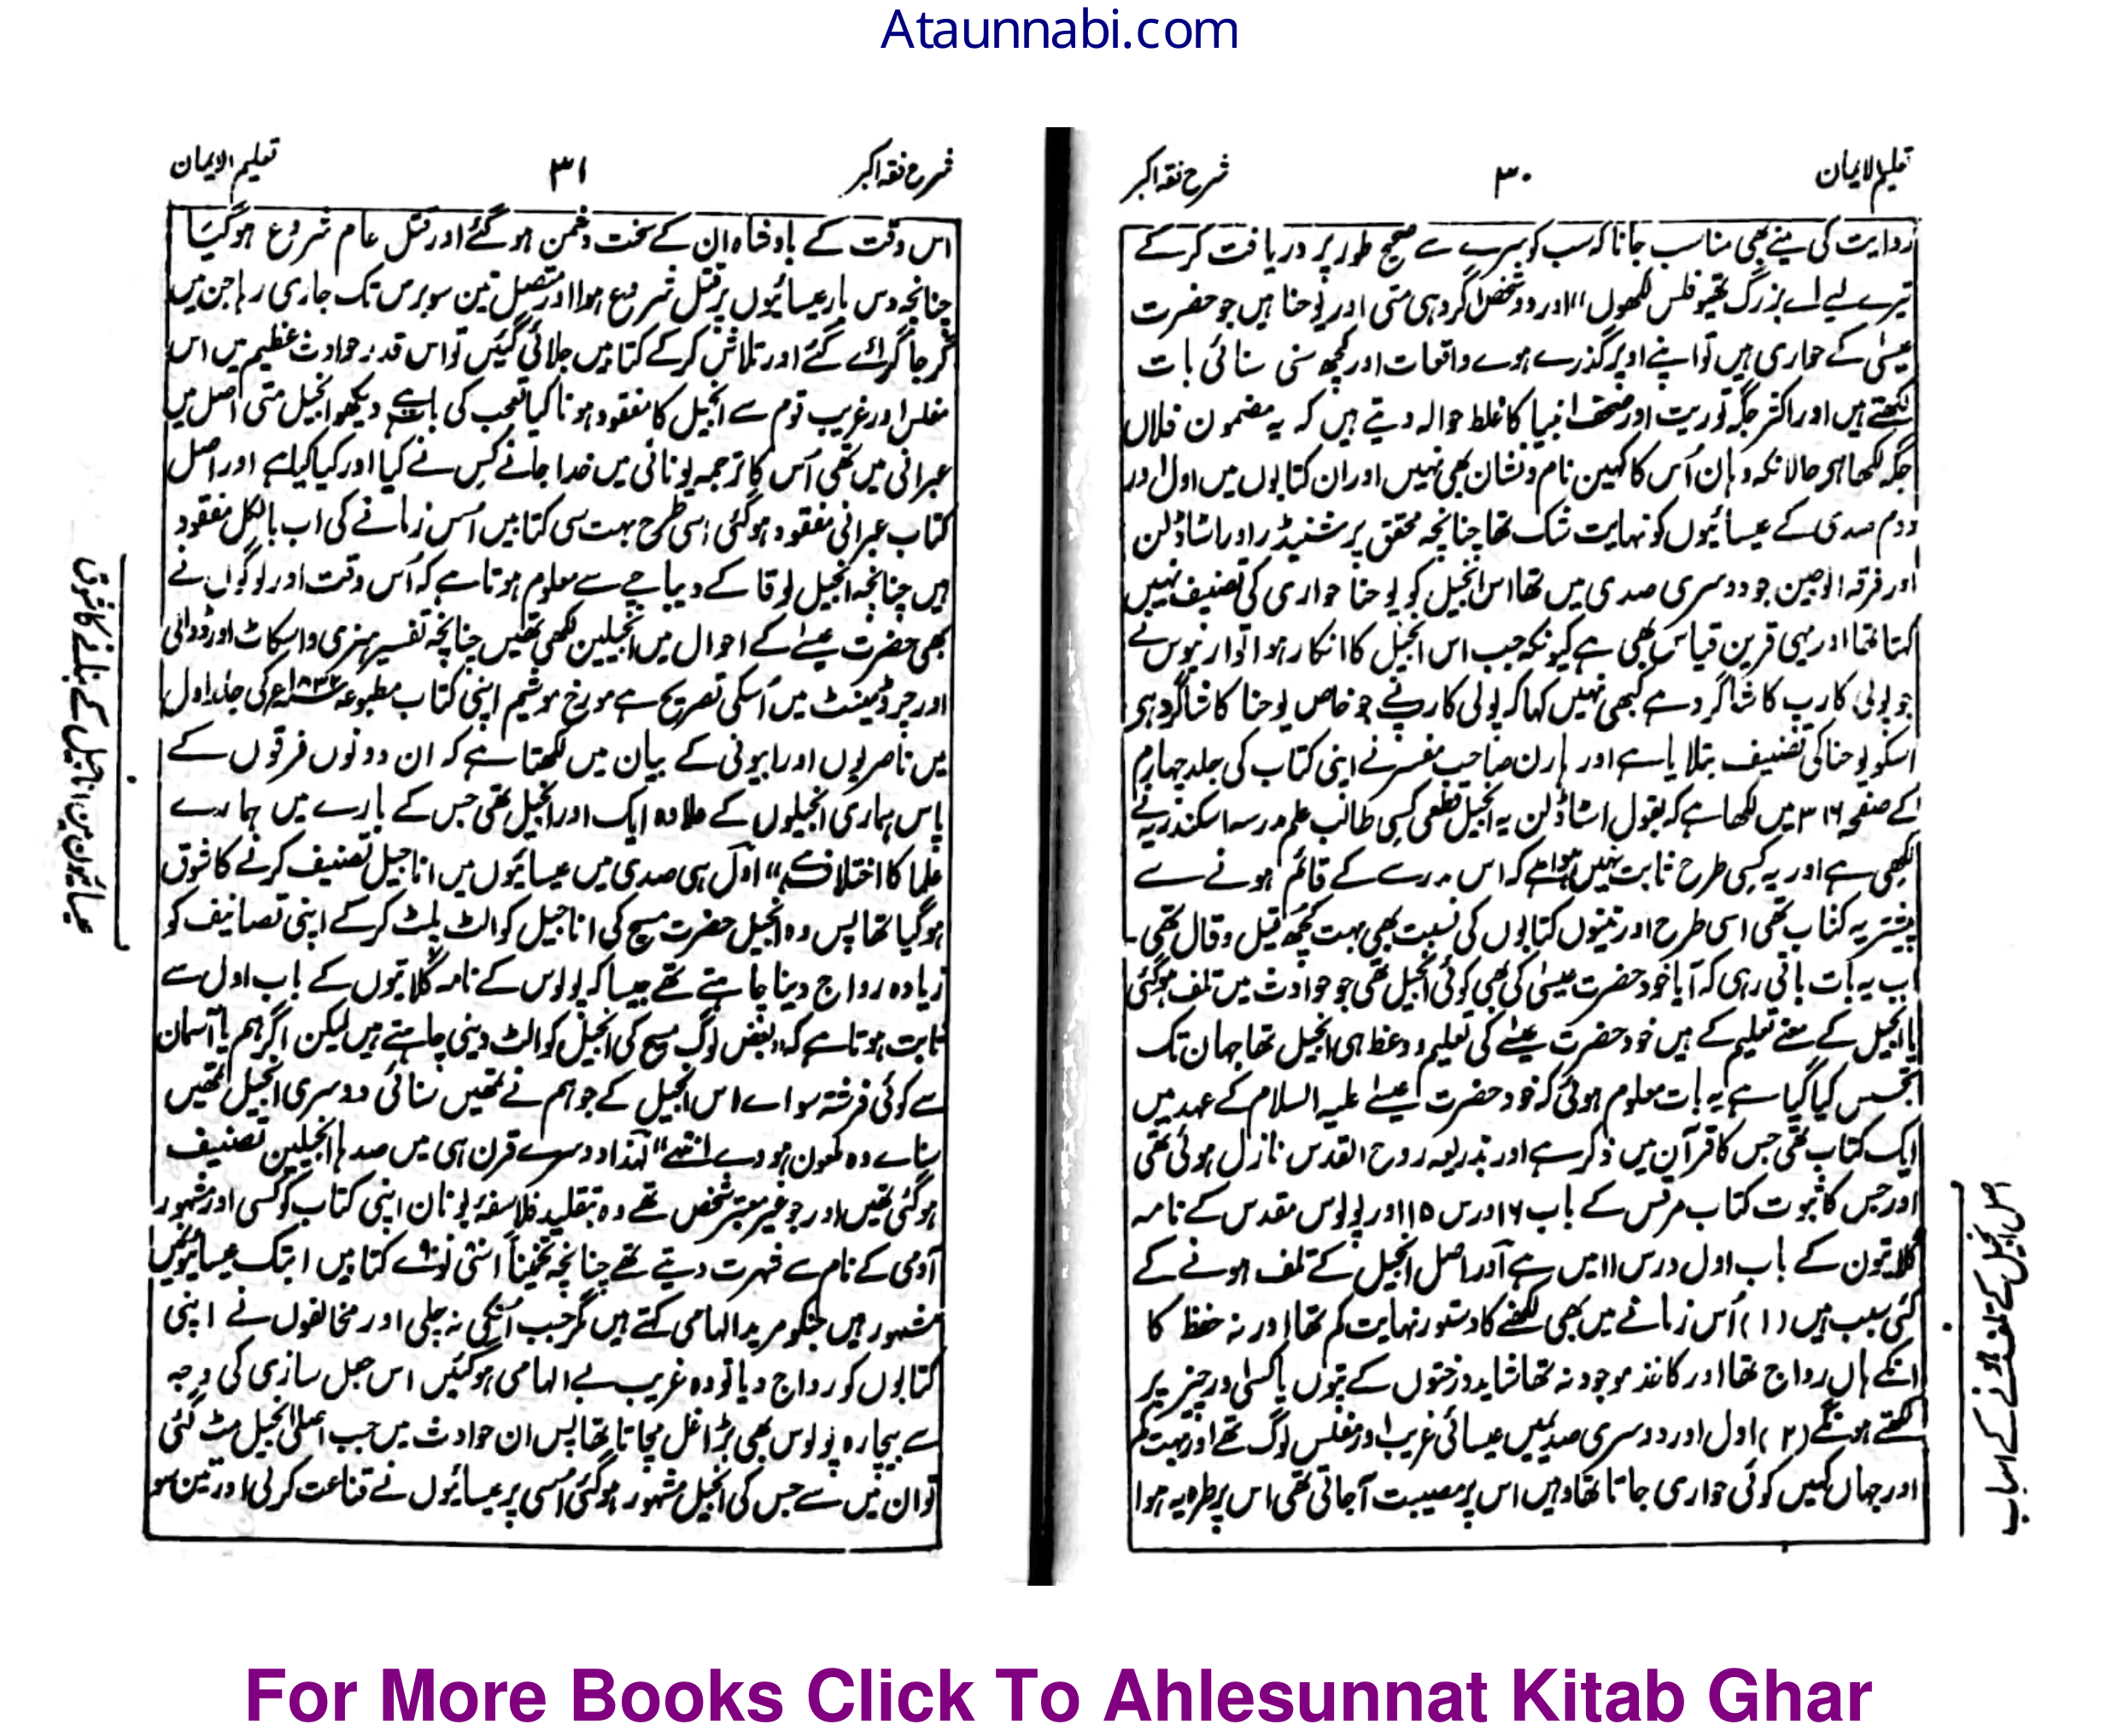 Ataunnabi.com
تعلیم الایمان ۳۰ شرح فقہ اکبر
روایت کی مینے بھی مناسب جانا کہ سب کو سرے سے صحیح طور پر دریافت کرکے
تیرے لیے اے بزرگ تھیوفلس لکھوں" اور دو شخص شاگرد ہی متی اور یوحنا ہیں جو حضرت
عیسیٰ کے حواری ہیں تو اپنے اوپر گذرے ہوے واقعات اور کچھ سنی سنائی بات
لکھتے ہیں اور اکثر جگہ توریت اور صحف انبیا کا غلط حوالہ دیتے ہیں کہ یہ مضمون فلاں
جگہ لکھا ہی حالانکہ وہان اُس کا کہین نام و نشان بھی نہیں اور ان کتابوں میں اول اور
دوم صدی کے عیسائیوں کو نہایت شک تھا چنانچہ محقق برشنیڈر اور اسٹاڈلن
اور فرقہ الوجین جو دوسری صدی میں تھا اس انجیل کو یوحنا حواری کی تصنیف نہیں
کہتا تھا اور یہی قرین قیاس بھی ہے کیونکہ جب اس انجیل کا انکار ہوا تو ارنیوس نے
جو پولی کارپ کا شاگرد ہے کبھی نہیں کہا کہ پولی کارپ نے جو خاص یوحنا کا شاگرد ہی
اسکو یوحنا کی تصنیف بتلایا ہے اور ہارن صاحب مفسر نے اپنی کتاب کی جلد چہارم
کے صفحہ ۳۱۶ میں لکھا ہے کہ بقول اسٹاڈلن یہ انجیل قطعی کسی طالب علم مدرسہ اسکندریہ نے
لکھی ہے اور یہ کسی طرح ثابت نہیں ہوا ہے کہ اس مدرسے کے قائم ہونے سے
پیشتر یہ کتاب تھی اسی طرح اور تینوں کتابوں کی نسبت بھی بہت کچھ قیل و قال تھی -
اب یہ بات باقی رہی کہ آیا خود حضرت عیسیٰ کی بھی کوئی انجیل تھی جو حوادث میں تلف ہوگئی
یا انجیل کے معنے تعلیم کے ہیں خود حضرت عیسے کی تعلیم و وعظ ہی انجیل تھا جہان تک
تجسس کیا گیا ہے یہ بات معلوم ہوئی کہ خود حضرت عیسے علیہ السلام کے عہد میں
ایک کتاب تھی جس کا قرآن میں ذکر ہے اور بذریعہ روح القدس نازل ہوئی تھی
اور جس کا ثبوت کتاب مرقس کے باب ۱۶ درس ۱۵ اور پولوس مقدس کے نامہ
گلایتون کے باب اول درس ۱۱ میں ہے اور اصل انجیل کے تلف ہونے کے
کئی سبب ہیں (۱) اُس زمانے میں بھی لکھنے کا دستور نہایت کم تھا اور نہ حفظ کا
انکے ہاں رواج تھا اور کاغذ موجود نہ تھا شاید درختوں کے پتوں یا کسی اور چیز پر
لکھتے ہونگے (۲) اول اور دوسری صدی میں عیسائی غریب اور مفلس لوگ تھے اور بہت کم
اور جہاں کہیں کوئی حواری جاتا تھا وہیں اس پر مصیبت آجاتی تھی اس پر طرہ یہ ہوا
اصل انجیل کے تلف ہونے کے اسباب
شرح فقہ اکبر ۳۱ تعلیم الایمان
اس وقت کے بادشاہ ان کے سخت دشمن ہوگئے اور قتل عام شروع ہوگیا
چنانچہ دس بار عیسائیوں پر قتل شروع ہوا اور متصل تین سو برس تک جاری رہا جن میں
گرجا گرائے گئے اور تلاش کرکے کتابیں جلائی گئیں تو اس قدر حوادث عظیم میں اس
مفلس اور غریب قوم سے انجیل کا مفقود ہونا کیا تعجب کی بات ہے دیکھو انجیل متی اصل میں
عبرانی میں تھی اُس کا ترجمہ یونانی میں خدا جانے کس نے کیا اور کیا کیا ہے اور اصل
کتاب عبرانی مفقود ہوگئی اسی طرح بہت سی کتابیں اُس زمانے کی اب بالکل مفقود
ہیں چنانچہ انجیل لوقا کے دیباچے سے معلوم ہوتا ہے کہ اُس وقت اور لوگوں نے
بھی حضرت عیسے کے احوال میں انجیلین لکھی تھیں چنانچہ تفسیر ہنری و اسکاٹ اور ڈوالی
اور چرڈ مینٹ میں اُسکی تصریح ہے مورخ موشیم اپنی کتاب مطبوعہ ۱۸۳۲ء کی جلد اول
میں ناصریوں اور ابیونی کے بیان میں لکھتا ہے کہ ان دونوں فرقوں کے
پاس ہماری انجیلوں کے علاوہ ایک اور انجیل تھی جس کے بارے میں ہمارے
علما کا اختلاف ہے" اول ہی صدی میں عیسائیوں میں اناجیل تصنیف کرنے کا شوق
ہوگیا تھا پس وہ انجیل حضرت مسیح کی اناجیل کو الٹ پلٹ کرکے اپنی تصانیف کو
زیادہ رواج دینا چاہتے تھے جیسا کہ پولوس کے نامہ گلاتیوں کے باب اول سے
ثابت ہوتا ہے کہ "بعض لوگ مسیح کی انجیل کو الٹ دینی چاہتے ہیں لیکن اگر ہم یا آسمان
سے کوئی فرشتہ سواے اس انجیل کے جو ہم نے تمھیں سنائی دوسری انجیل تمھیں
سناے وہ ملعون ہووے انتہے" لہذا دوسرے قرن ہی میں صدہا انجیلین تصنیف
ہوگئی تھیں اور جو غیر معتبر شخص تھے وہ بتقلید فلاسفۂ یونان اپنی کتاب کو کسی اور مشہور
آدمی کے نام سے شہرت دیتے تھے چنانچہ تخمیناً اسّی نوّے کتابیں ابتک عیسائیوں میں
مشہور ہیں جنکو مرید الہامی کہتے ہیں مگر جب اُنکی نہ چلی اور مخالفوں نے اپنی
کتابوں کو رواج دیا تو وہ غریب بے الہامی ہوگئیں اس جعل سازی کی وجہ
سے بیچارہ پولوس بھی بڑا غل مچاتا تھا پس ان حوادث میں جب اصلی انجیل مٹ گئی
تو ان میں سے جس کی انجیل مشہور ہوگئی اُسی پر عیسائیوں نے قناعت کرلی اور تین سو
عیسائیون مین اناجیل کے بنانے کا شوق
For More Books Click To Ahlesunnat Kitab Ghar